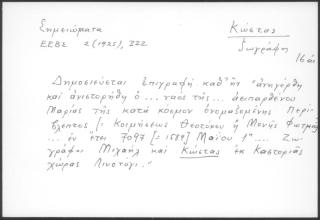 Σημειώματα
Κώστας
ΕΕΒΣ 2 (1925), 322
ζωγράφη
16 αι
Δημοσιεύεται ἐπιγραφή καθ' ἥν "ἀνηγέρθη
καί ἀνιστορήθη ὁ ... ναός τῆς ... ἀειπαρθένου
Μαρίας τῆς κατά κόσμον ὀνομαζομένης Περί
βλεπτος [: Κοιμήσεως Θεοτόκου ἤ Μονῆς
... ἐν ἔτει 7097 [= 1589] Μαΐου 1" .... Ζω
γράφοι Μιχαήλ καί Κώστας ἐκ Καστοριᾶς
χώρας Λινοτόπι."